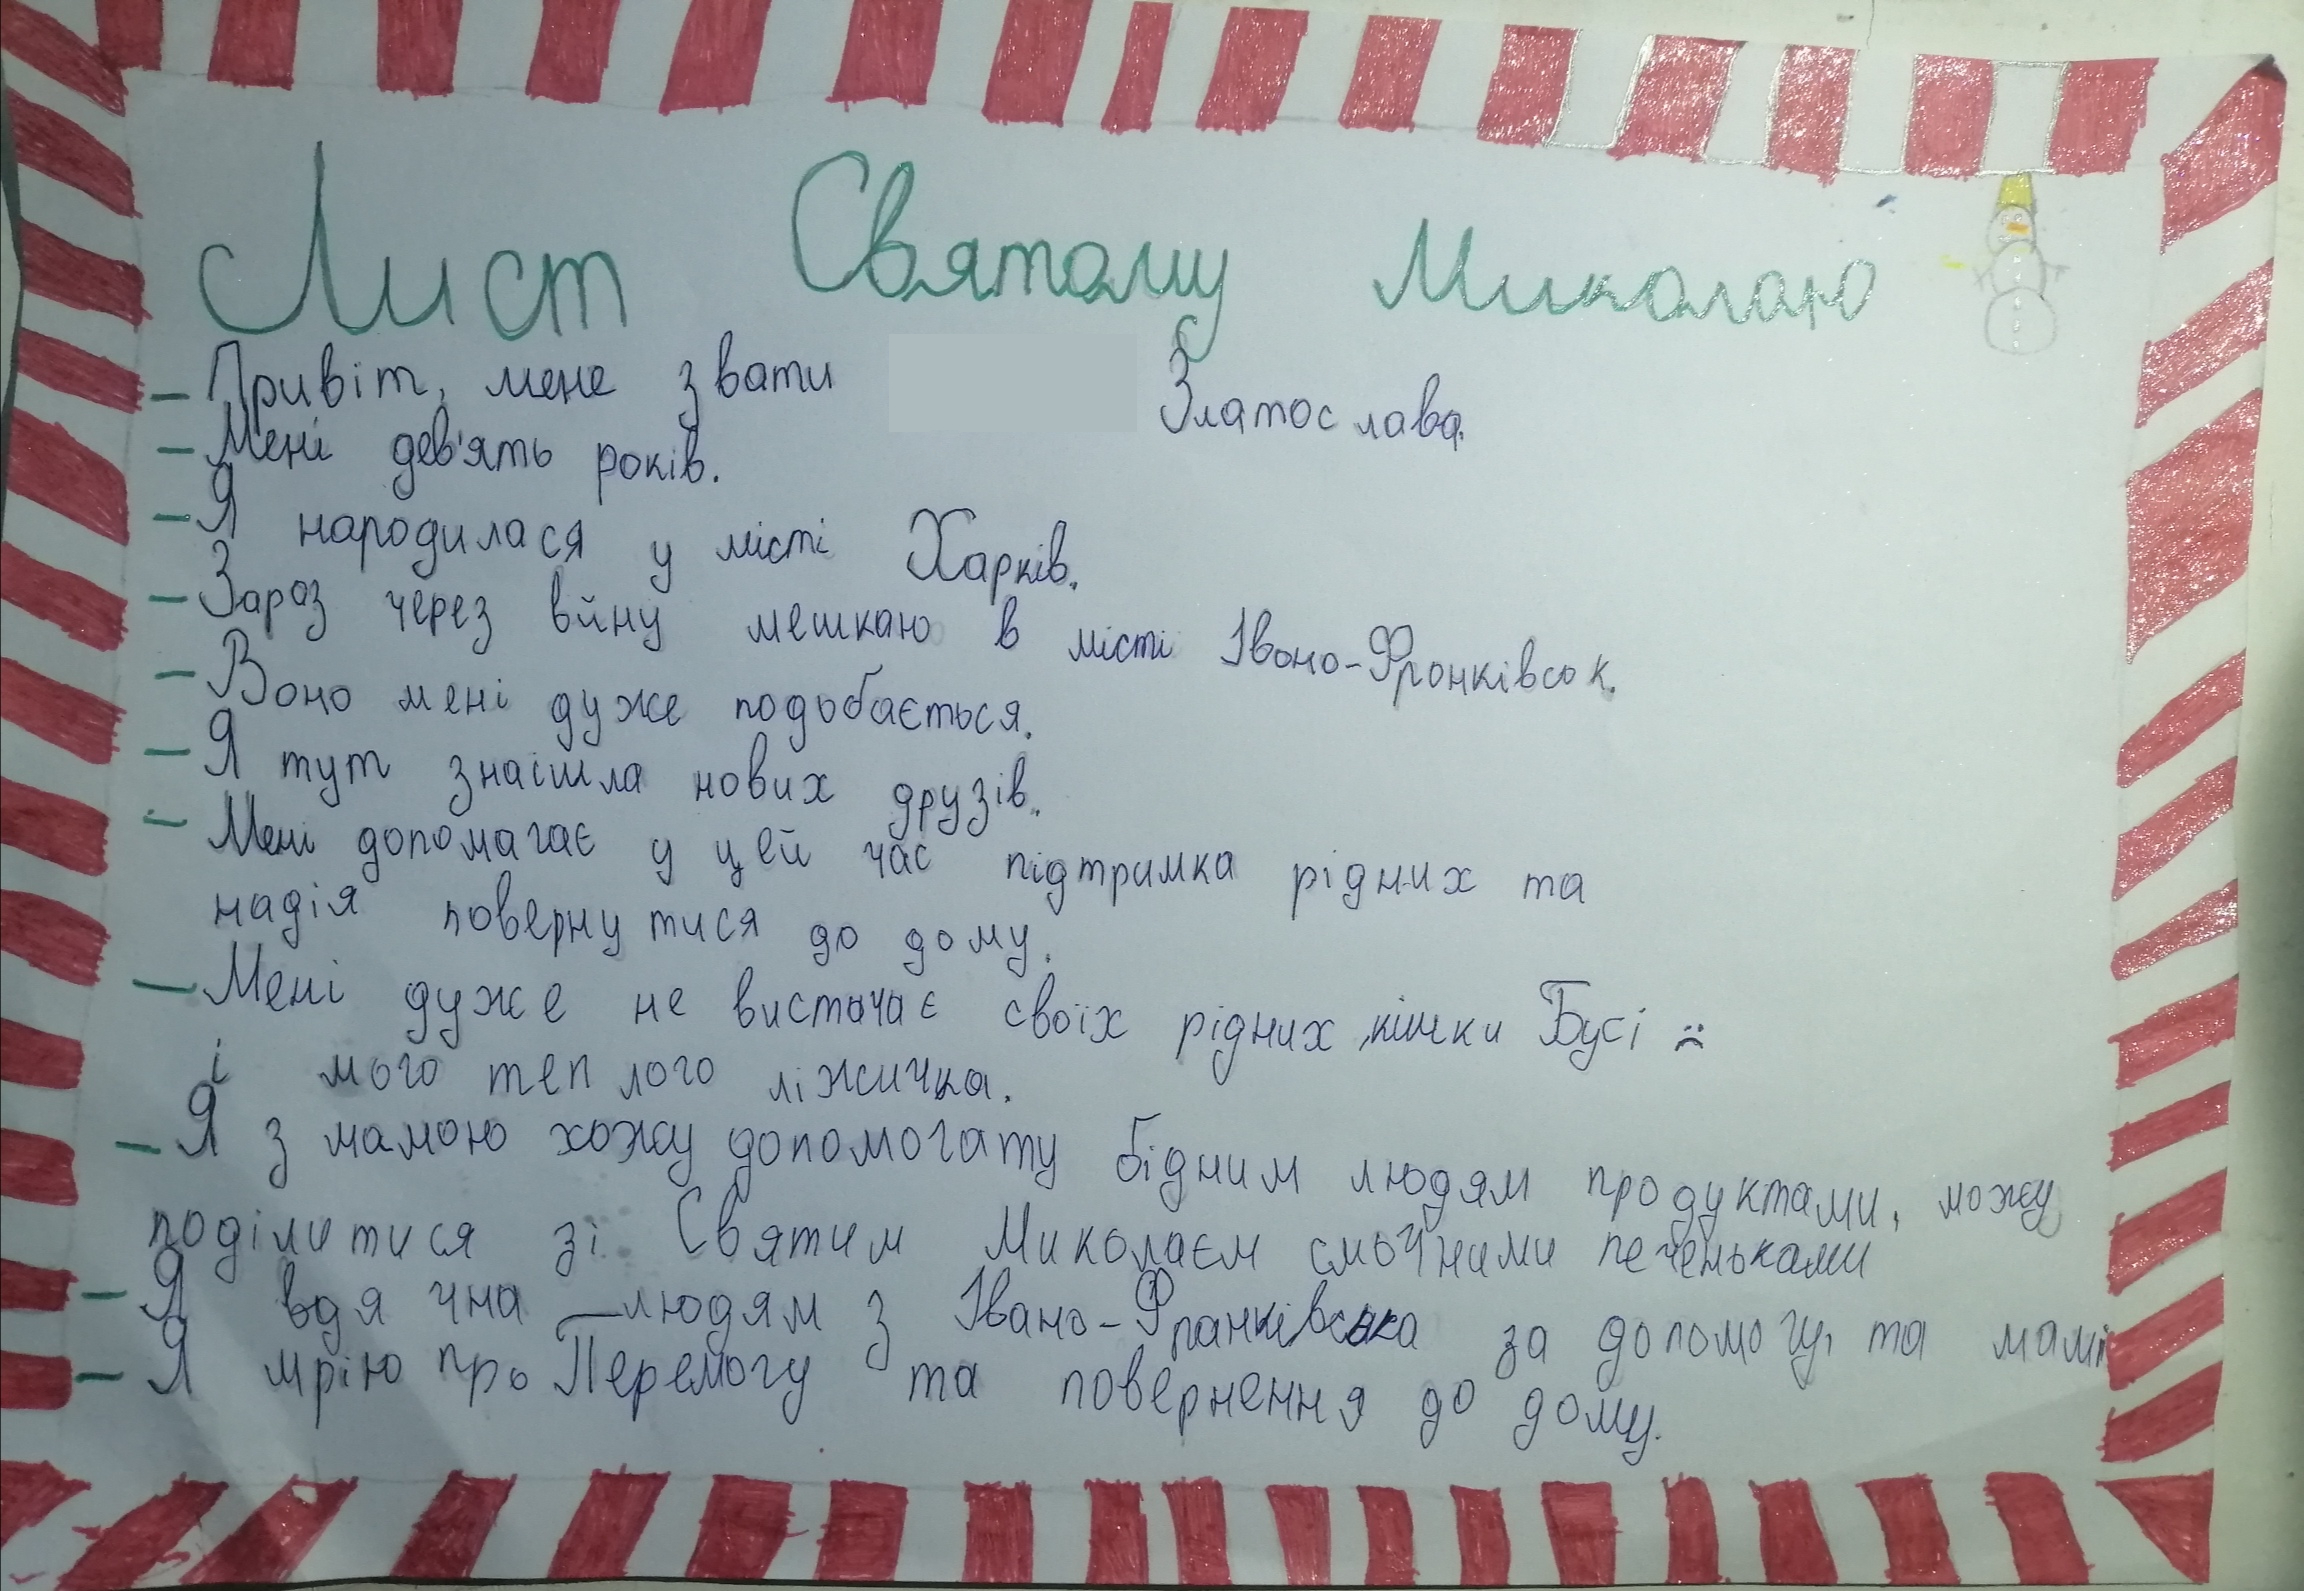 Лист Святому Миколаю
– Привіт, мене звати Златослава.
– Мені дев'ять років.
– Я народилася у місті Харків.
– Зараз через війну мешкаю в місті Івано-Франківськ.
– Воно мені дуже подобається.
– Я тут знайшла нових друзів.
– Мені допомагає у цей час підтримка рідних та
надія повернутися до дому.
– Мені дуже не вистачає своїх рідних, кішки Бусі ☹
і мого теплого ліжичка.
– Я з мамою хожу допомогату бідним людям продуктами, можу
поділитися зі Святим Миколаєм смочними печеньками
– Я вдячна людям з Івано-Франківська за допомогу, та мамі
– Я мрію про Перемогу та повернення до дому.